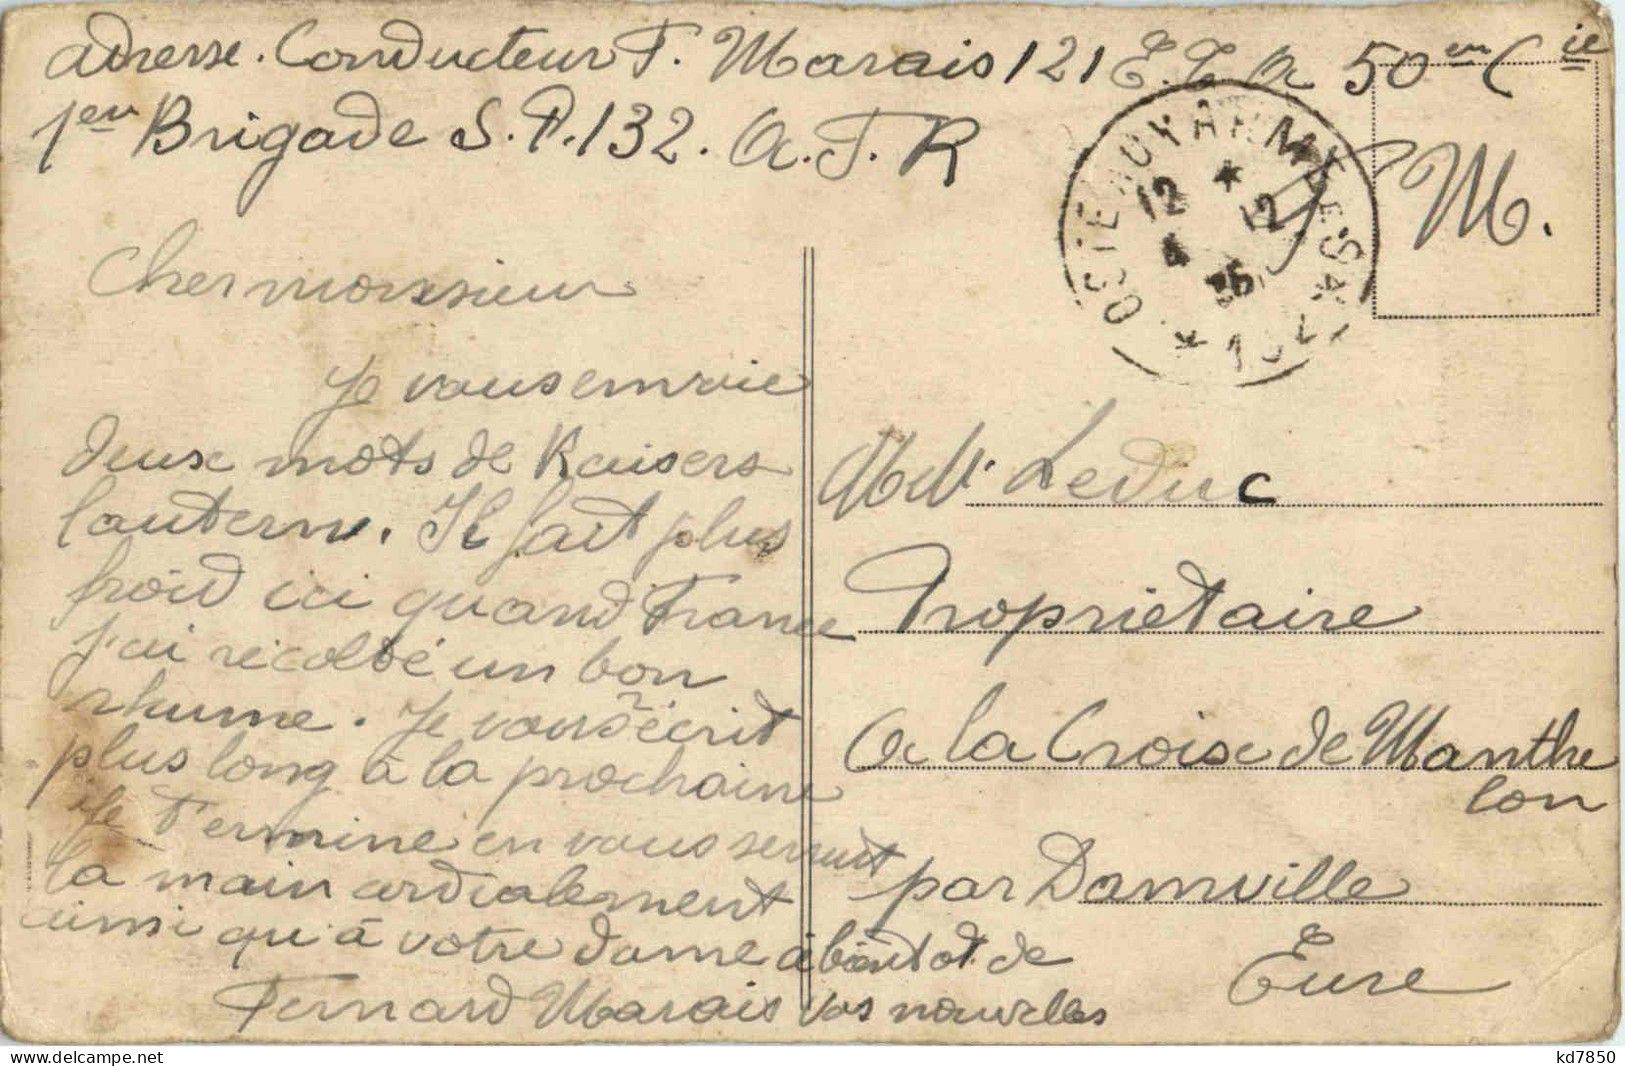 adresse. Conducteur F. Marais 121 E.T. a 50en Cie
1er Brigade S.P. 132. A.F.R
F M.
12 * 12
4 25
Cher monsieur
Je vous emvoie
deux mots de Kaisers
lautern. Il fait plus
froid ici quand France
j'ai récolté un bon
rhume. Je vous écrit
plus long à la prochaine
Je Termine en vous serrant
la main cordialement
ainsi qu'à votre dame à bientot de
Fernard Marais vos nouvelles
Mr. Leduc
Propriétaire
A la Croix de Manthe
lon
par Damville
Eure
kd7850